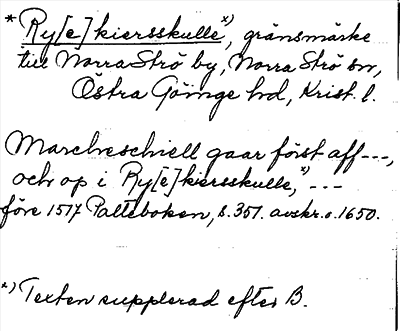 * Ry[e]kiersskulle*), gränsmärke
till Norra Strö by, Norra Strö sn,
Östra Göinge hd, Krist. l.
Marchreschiell gaar först aff ---,
och op i Ry[e]kiersskulle,*) ---
före 1517 Palteboken, s. 357. avskr. o. 1650.
*) Texten supplerad efter B.